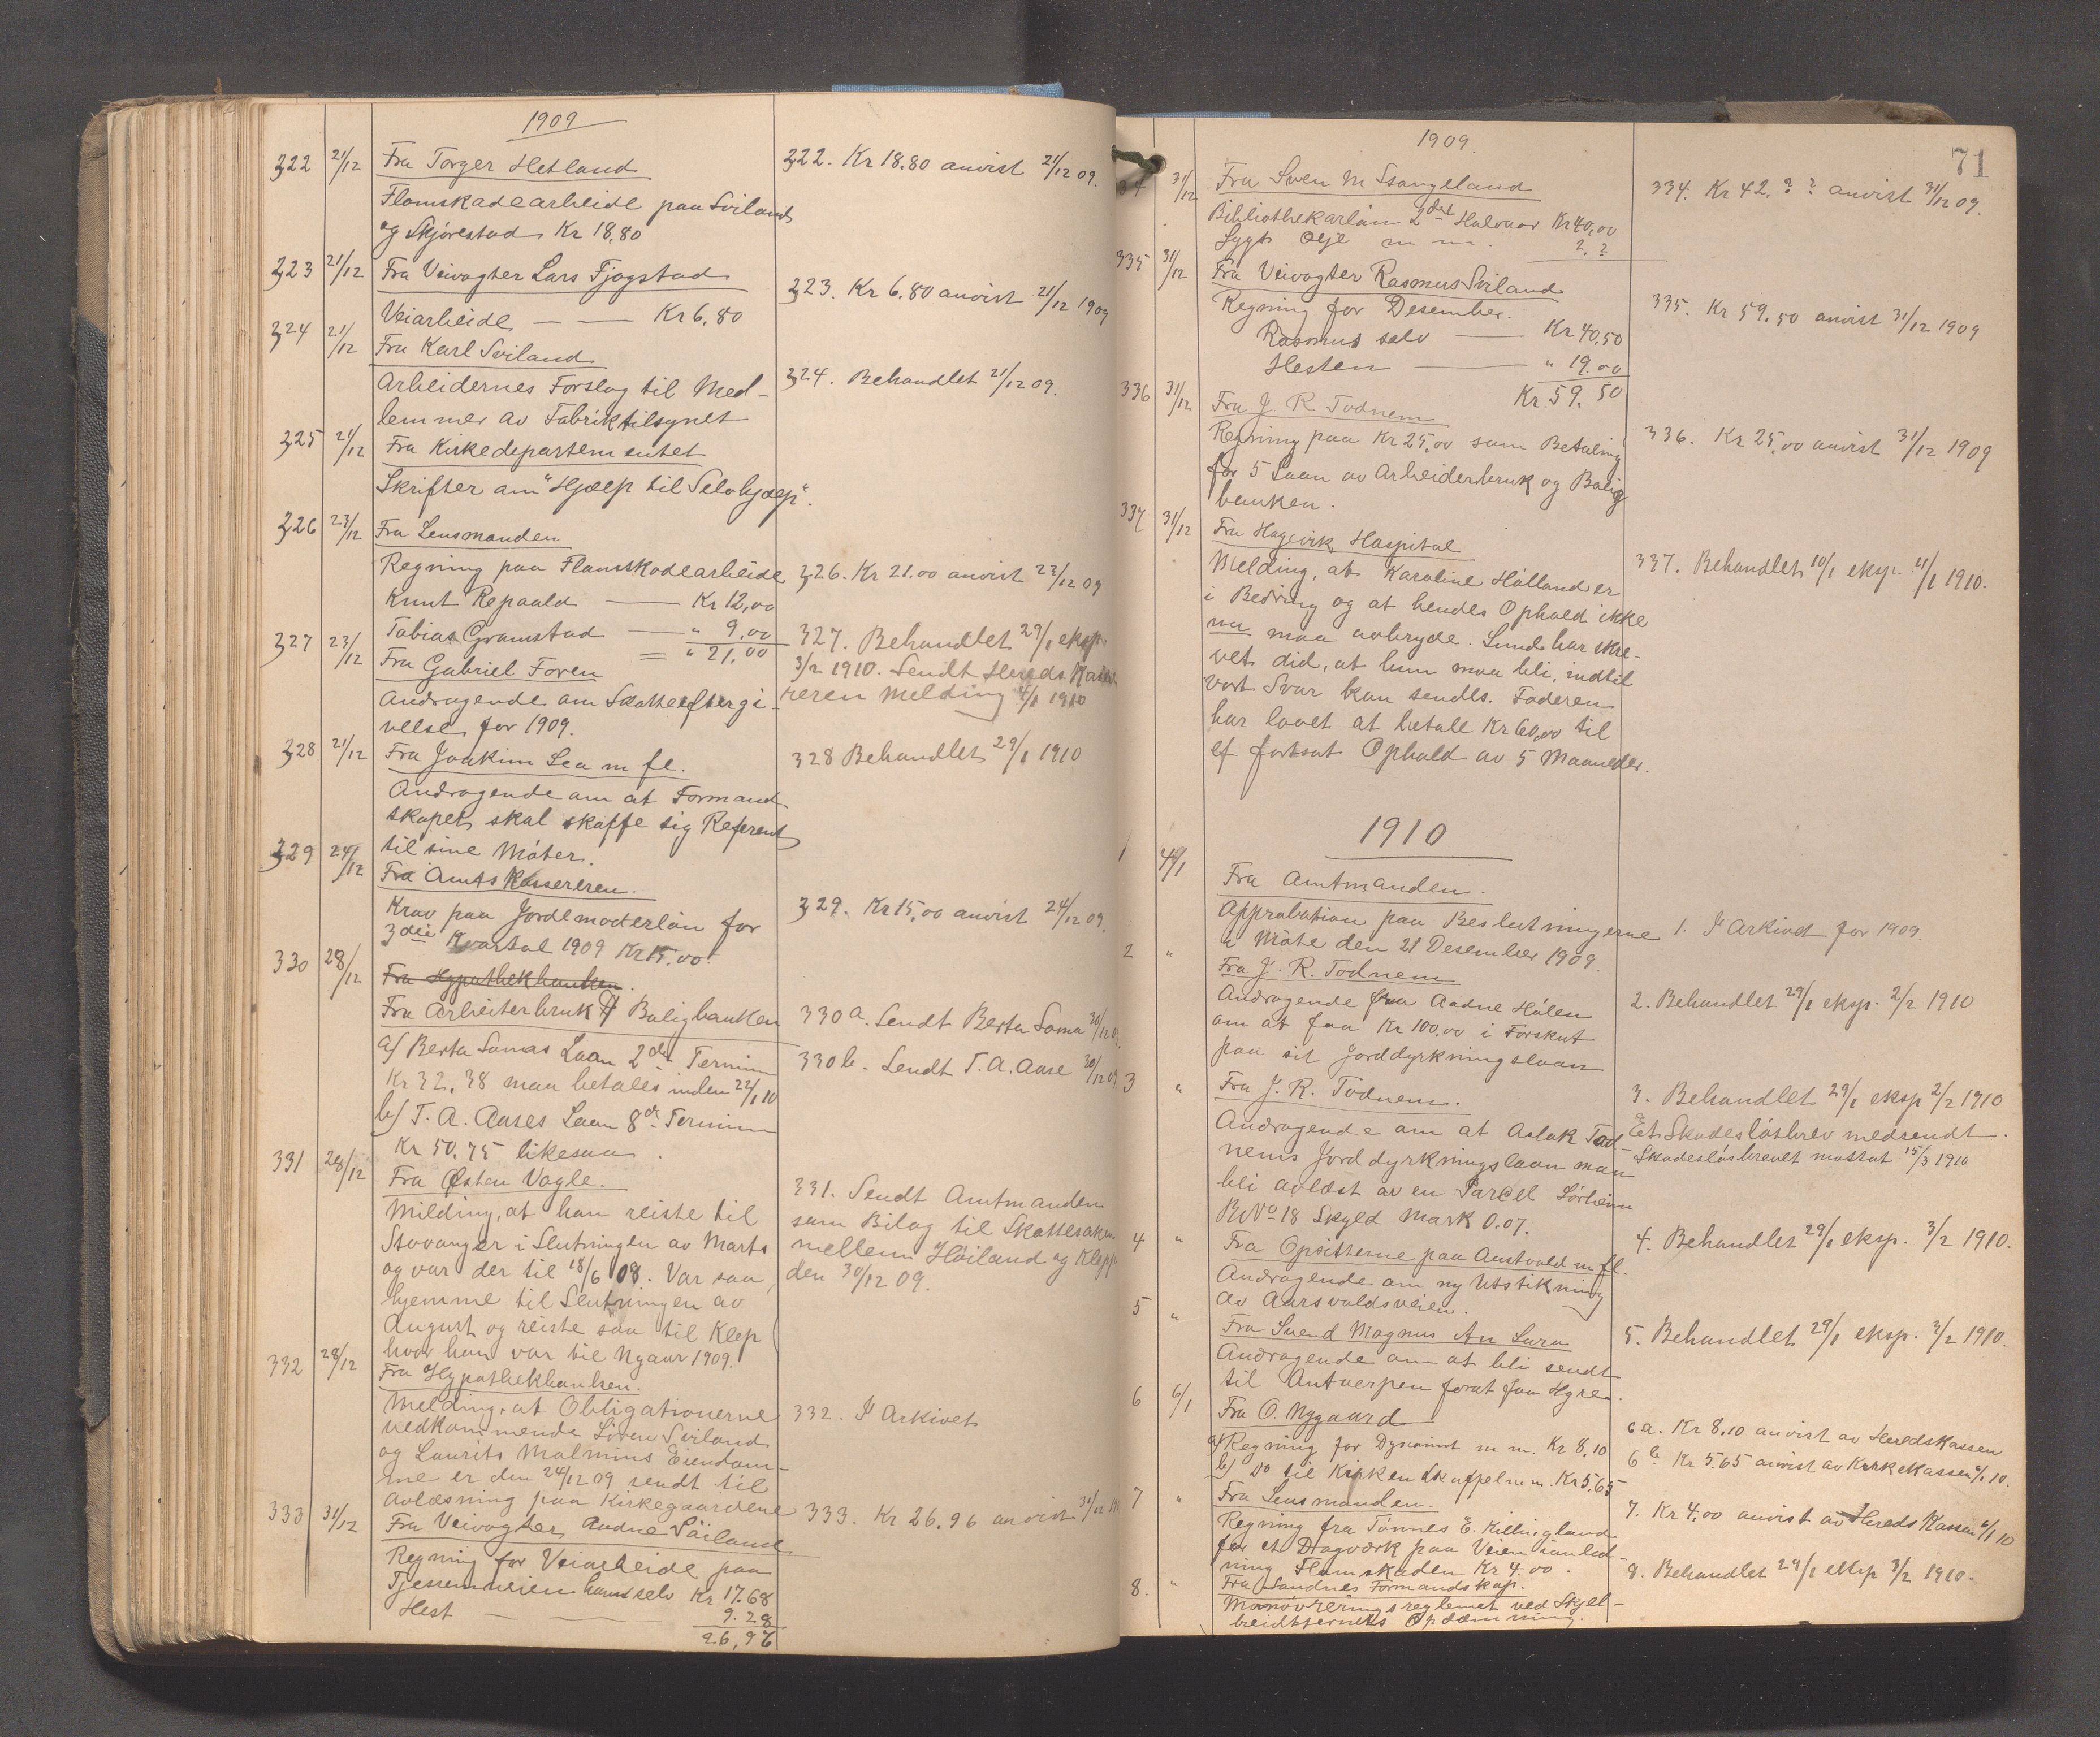 1909
322 21/12 Fra Torger Hetland
Flomskadearbeide paa Sviland
og Skjørestad Kr 18,80
322. Kr 18.80 anvist 21/12 09.
323 21/12 Fra Veivogter Lars Fjogstad
Veiarbeide — — Kr 6,80
323. Kr 6.80 anvist 21/12 1909
324 21/12 Fra Karl Sviland
Arbeidernes Forslag til Med-
lemmer av Fabriktilsynet
324. Behandlet 21/12 09.
325 21/12 Fra Kirkedepartementet
Skrifter om "Hjælp til Selvhjælp".
326 23/12 Fra Lensmanden
Regning paa Flomskadearbeide
Knut Repaald — Kr 12,00
Tobias Gramstad — " 9,00
= " 21,00
326. Kr 21.00 anvist 23/12 09
327 23/12 Fra Gabriel Foren
Andragende om Skatteeftergi-
velse for 1909.
327. Behandlet 29/1 eksp.
3/2 1910. Sendt Hereds Kasse-
reren Melding 4/1 1910
328 21/12 Fra Joakim Lea m fl.
Andragende om at Formand-
skapet skal skaffe sig Referent
til sine Møter.
328 Behandlet 29/1 1910
329 24/12 Fra Amtskassereren.
Krav paa Jordemoderløn for
3die Kvartal 1909 Kr 15.00.
329. Kr 15,00 anvist 24/12 09.
330 28/12 Fra Hypothekbanken.
Fra Arbeiterbruk & Boligbanken
a/ Berta Somas Laan 2de Termin
Kr 32,38 maa betales inden 22/1 10
b/ T. A. Aases Laan 8de Termin
Kr 50.75 likesaa.
330 a. Sendt Berta Soma 30/12 09.
330 b. Sendt T. A. Aase 30/12 09
331 28/12 Fra Østen Vagle.
Melding, at han reiste til
Stavanger i Slutningen av Marts
og var der til 18/6 08. Var saa
hjemme til Slutningen av
August og reiste saa til Klep
hvor han var til Nyaar 1909.
331. Sendt Amtmanden
som Bilag til Skattesaken
mellem Høiland og Klepp
den 30/12 09.
332 28/12 Fra Hypothekbanken.
Melding, at Obligationerne
vedkommende Søren Sviland
og Laurits Malmins Eiendom-
me er den 24/12 09 sendt til
Avlæsning paa Kirkegaardene
332. I Arkivet
333 31/12 Fra Veivogter Aadne Søiland
Regning for Veiarbeide paa
Tjessemveien ham selv Kr 17.68
Hest — — 9.28
26,96
333. Kr 26.96 anvist 31/12
71
1909.
34 31/12 Fra Sven M Ssangeland
Bibliothekarløn 2det Halvaar Kr 40,00
Lygt Olje m m. ?.?
334. Kr 42.?? anvist 31/12 09.
335 31/12 Fra Veivogter Rasmus Sviland
Regning for Desember.
Rasmus selv — Kr 40,50
Hesten — " 19.00
Kr. 59,50
335. Kr 59.50 anvist 31/12 1909
336 31/12 Fra J. R. Todnem
Regning paa Kr 25,00 som Betaling
for 5 Laan av Arbeiderbruk og Bolig
banken.
336. Kr 25,00 anvist 31/12 1909
337 31/12 Fra Hagevik Hospital
Melding, at Karoline Hålland er
i Bedring og at hendes Ophold ikke
nu maa avbryde. Lund har skre-
vet did, at hun maa bli, indtil
vort Svar kan sendes. Faderen
har lovet at betale Kr 60,00 til
et fortsat Ophold av 5 Maaneder.
337. Behandlet 10/1 eksp. 11/1 1910.
1910
1 4/1 Fra Amtmanden.
Approbation paa Beslutningerne
i Møte den 21 Desember 1909.
1. I Arkivet for 1909.
2 " Fra J. R. Todnem
Andragende fra Aadne Hålen
om at faa Kr 100.00 i Forskut
paa sit Jorddyrkningslaan
2. Behandlet 29/1 eksp. 2/2 1910
3 " Fra J. R. Todnem.
Andragende om at Aslak Tod-
nems Jorddyrkningslaan maa
bli avløst av en Parcel Sørheim
B No 18 Skyld Mark 0.07.
3. Behandlet 29/1 eksp 2/2 1910
Et Skadesløsbrev medsendt.
Skadesløsbrevet mottat 15/3 1910
4 " Fra Opsitterne paa Austvold m fl.
Andragende om ny Utstikning
av Aarsvoldsveien.
4. Behandlet 29/1 eksp. 3/2 1910.
5 " Fra Svend Magnus An Lura
Andragende om at bli sendt
til Antwerpen forat faa Hyre.
5. Behandlet 29/1 eksp. 3/2 1910.
6 6/1 Fra O. Nygaard
a/ Regning for Dynamit m m. Kr 8,10
b/ Do til Kirken Skuffel m m. Kr 5,65
6 a. Kr 8.10 anvist av Heredskassen
6 b Kr 5.65 anvist av Kirkekassen 6/1 10.
7 " Fra Lensmanden.
Regning fra Tønnes E. Killingland
for et Dragværk paa Veien i anled-
ning Flomskaden Kr 4.00.
7. Kr 4,00 anvist av Hereds Kassen 6/1 10
8. " Fra Sandnes Formandskap.
Manøvreringsreglement ved Skjel-
breidtjernets Opdæmning.
8. Behandlet 29/1 eksp 3/2 1910.